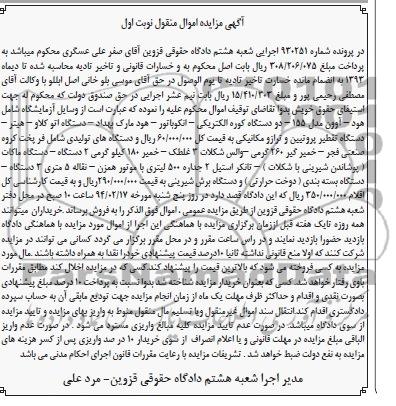 آگهی مزایده اموال منقول نوبت اول
در پرونده شماره ۹۳۰۲۵۱ اجرایی شعبه هشتم دادگاه حقوقی قزوین آقای صفر علی عسگری محکوم میباشد به
پرداخت مبلغ ۳۰۸/۲۰۶/۰۷۵ ریال بابت اصل محکوم به و خسارات قانونی و تاخیر تادیه محاسبه شده تا دیماه
۱۳۹۳ به انضمام مانده خسارت تاخیر تادیه تا یوم الوصول در حق آقای موسی بلو خانی اصل ابللو با وکالت آقای
مصطفی رحیمی پور و مبلغ ۱۵/۴۱۰/۳۰۳ ریال بابت نیم عشر اجرایی در حق صندوق دولت که محکوم له جهت
استیفای حقوق خویش بدوا تقاضای توقیف اموال محکوم علیه را نموده که عبارت است از وسایل آزمایشگاه شامل
هود – اوون مدل ۱۵۵ – دو دستگاه کوره الکتریکی – انکوباتور – هود مارک بهداد – دستگاه اتو کلاو – هیتر –
دستگاه تقطیر پروتیین و ترازو مکانیکی به قیمت کل ۶۰/۰۰۰/۰۰۰ ریال و دستگاه های تولیدی شامل فر پخت کروه
صنعتی فجر – خمیر گیر ۲۶۰ گرمی –والس شکلات ۳ غلطک – خمیر ۱۸۰ کیلو گرمی ۲ دستگاه – دستگاه ماکات
( پوشاندن شیرینی با شکلات ) – تانکر استیل ۲ جداره ۵۰۰ لیتری با موتور همزن – نقاله ۵ متری ۳ دستگاه –
دستگاه بسته بندی ( دوخت حرارتی ) و دستگاه برش شیرینی به قیمت ۲۹۰/۰۰۰/۰۰۰ریال و به قیمت کارشناسی کل
اقلام ۳۵۰/۰۰۰/۰۰۰ ریال که این دادگاه قصد دارد در روز پنج شنبه مورخه ۹۴/۰۲/۱۷ ساعت ۱۰ صبح در محل دفتر
شعبه هشتم دادگاه حقوقی قزوین از طریق مزایده عمومی ، اموال فوق الذکر را به فروش برساند .خریداران میتوانند
همه روزه تایک هفته قبل اززمان برگزاری مزایده با هماهنگی این اجرا از اموال مورد مزایده با هماهنگی دادگاه
بازدید حضورا بازدید نمایند و در راس ساعت مقرر و در محل مقرر برگزار می گردد کسانی می توانند در مزایده
شرکت کنند که اولا منع قانونی نداشته ثانیا ۱۰درصد قیمت پیشنهادی خودرا نقدا به همراه داشته باشند .مال مورد
مزایده به کسی فروخته می شود که بالاترین قیمت را پیشنهاد کند کسی که در مزایده اخلال کند مطابق مقررات
باوی رفتار خواهد شد. کسی که بعنوان خریدار مزایده شناخته شد بدوا نسبت به پرداخت ۱۰ درصد مبلغ پیشنهادی
بصورت نقدی و اقدام و حداکثر ظرف مهلت یک ماه از زمان انجام مزایده جهت تودیع مابقی آن به حساب سپرده
دادگستری اقدام کند انتقال سند اموال غیر منقول ویا تسلیم مال منقول منوط به واریز بهای مزایده و تایید مزایده
از سوی دادگاه میباشد. در صورت عدم تایید مزایده کلیه مبالغ واریزی مسترد می شود . در صورت عدم واریز
الباقی مبلغ مزایده در مهلت قانونی و یا اعلام انصراف از سوی خریدار ۱۰ در صد واریزی پس از کسر هزینه های
مزایده به نفع دولت ضبط خواهد شد . تشریفات مزایده با رعایت مقررات قانون اجرای احکام مدنی می باشد
مدیر اجرا شعبه هشتم دادگاه حقوقی قزوین- مرد علی